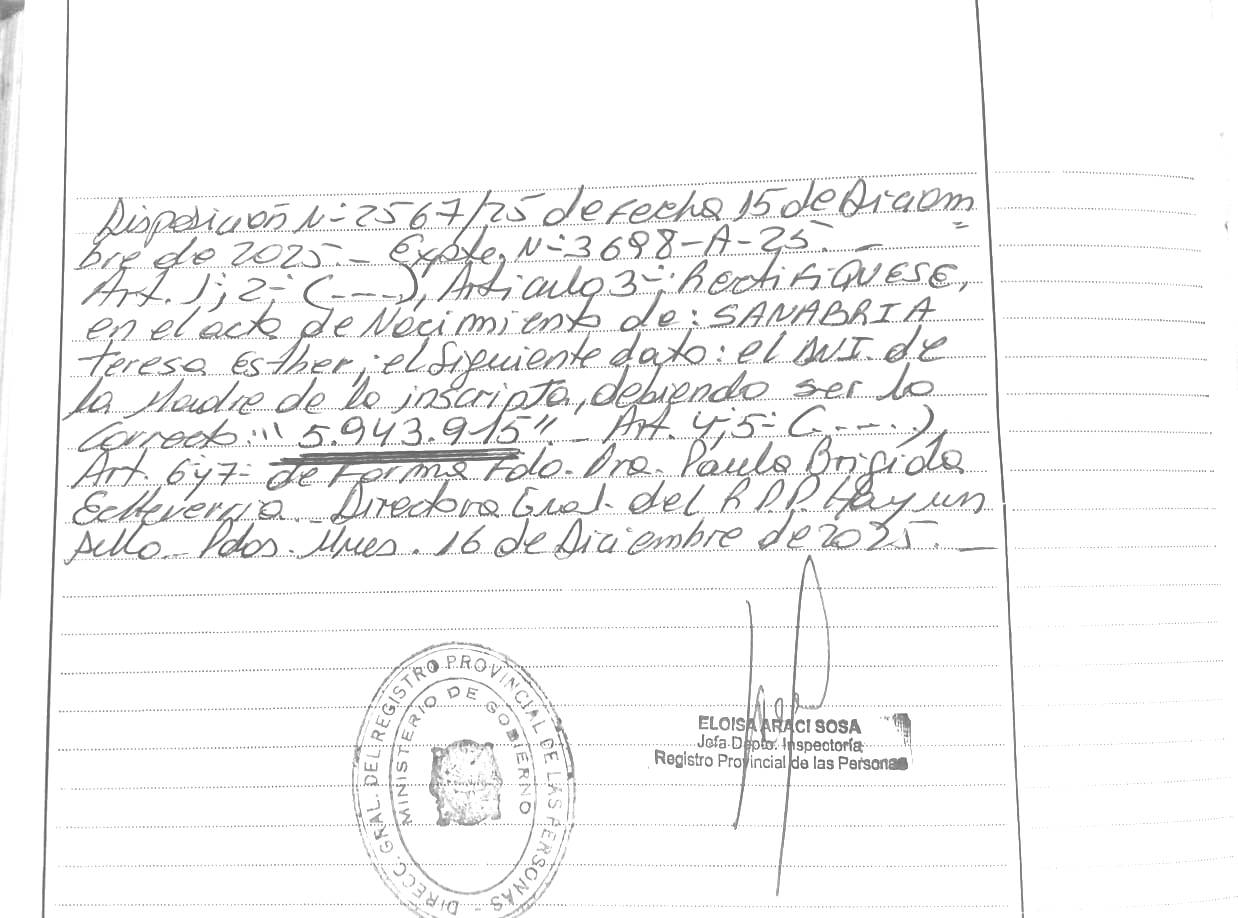 Disposición N° 2567/25 de Fecha 15 de Diciem
bre de 2025. - Expte. N° 3698-A-25. -
Art. 1°, 2° (----), Articulo 3°: RectiFiQUESE,
en el acta de Nacimiento de: SANABRIA
Teresa Esther; el siguiente dato: el DNI. de
la Madre de la inscripta, debiendo ser lo
Correcto: "5.943.915". - Art. 4°, 5° (----),
Art. 6 y 7° de Forma Fdo. Dra. Paula Brigida
Echeverria - Directora Gral. del R.P.P. Hay un
sello - Pdos. Mnes. 16 de Diciembre de 2025. -
DIRECC. GRAL. DEL REGISTRO PROVINCIAL DE LAS PERSONAS -
MINISTERIO DE GOBIERNO
ELOISA ARACI SOSA
Jefa Depto. Inspectoría
Registro Provincial de las Personas